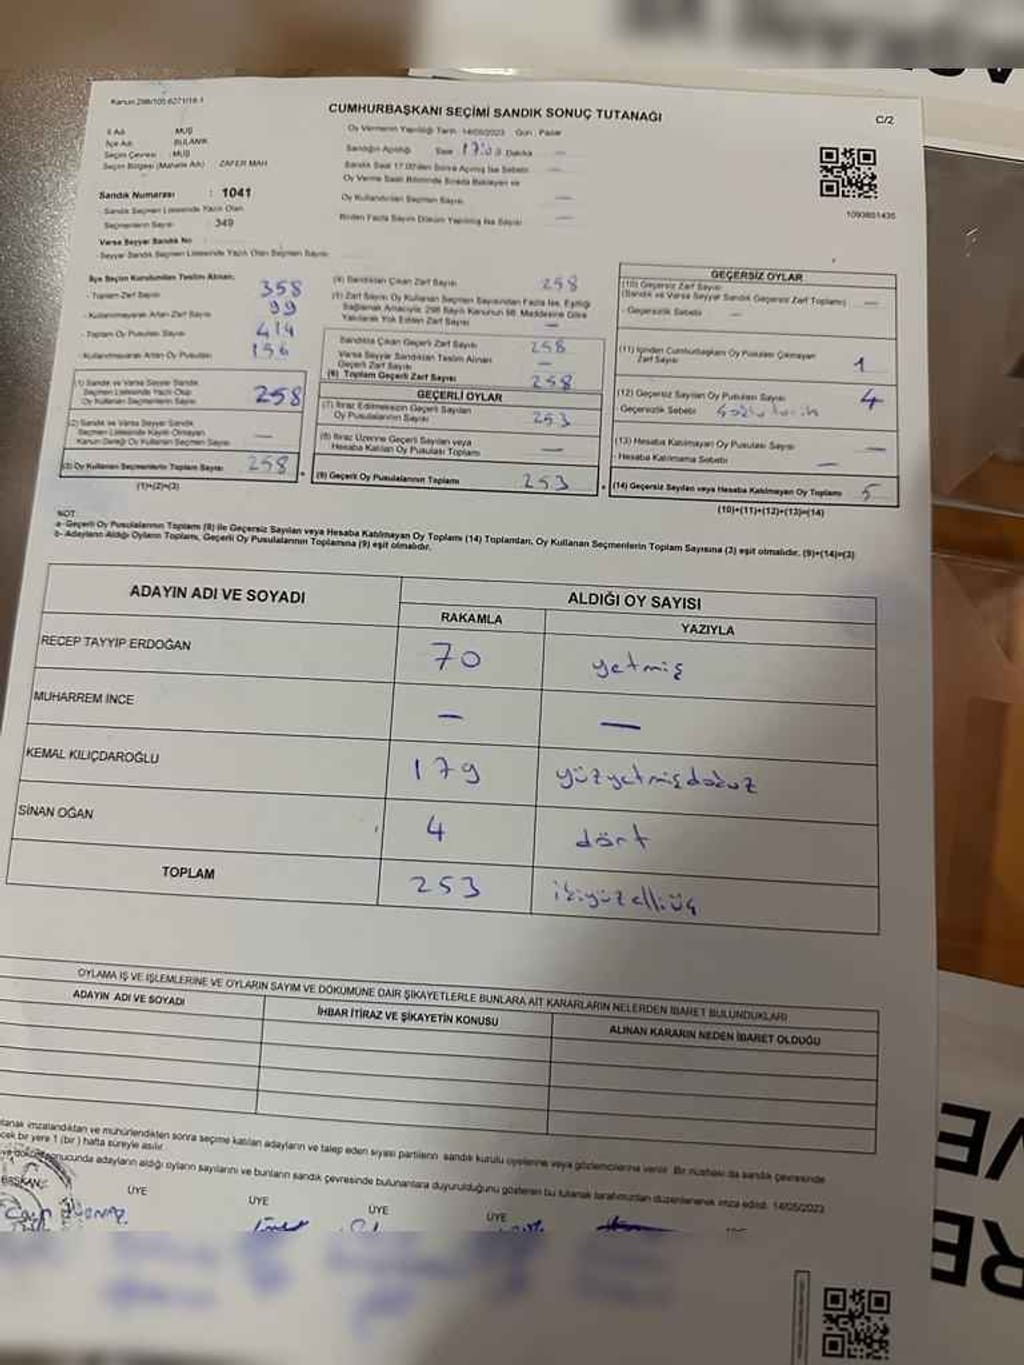 Kanun 298/105 6271/18-1
CUMHURBAŞKANI SEÇİMİ SANDIK SONUÇ TUTANAĞI
C/2
İl Adı MUŞ
İlçe Adı BULANIK
Seçim Çevresi : MUŞ
Seçim Bölgesi (Mahalle Adı) ZAFER MAH
Sandık Numarası : 1041
Sandık Seçmen Listesinde Yazılı Olan
Seçmenlerin Sayısı 349
Varsa Seyyar Sandık No
Seyyar Sandık Seçmen Listesinde Yazılı Olan Seçmen Sayısı
Oy Vermenin Yapıldığı Tarih 14/05/2023 Gün : Pazar
Sandığın Açıldığı Saat Dakika —
Sandık Saat 17.00'den Sonra Açılmış İse Sebebi —
Oy Verme Saati Bitiminde Sırada Bekleyen ve
Oy Kullandırılan Seçmen Sayısı —
Birden Fazla Sayım Döküm Yapılmış İse Sayısı —
1093851435
İlçe Seçim Kurulundan Teslim Alınan:
- Toplam Zarf Sayısı 358
- Kullanılmayarak Artan Zarf Sayısı 99
- Toplam Oy Pusulası Sayısı 414
- Kullanılmayarak Artan Oy Pusulası 156
(1) Sandık ve Varsa Seyyar Sandık
Seçmen Listesinde Yazılı Olup
Oy Kullanan Seçmenlerin Sayısı 258
(2) Sandık ve Varsa Seyyar Sandık
Seçmen Listesinde Kayıtlı Olmayan
Kanun Gereği Oy Kullanan Seçmen Sayısı —
(3) Oy Kullanan Seçmenlerin Toplam Sayısı 258
(1)+(2)=(3)
(4) Sandıktan Çıkan Zarf Sayısı 258
(5) Zarf Sayısı Oy Kullanan Seçmen Sayısından Fazla İse, Eşitliği
Sağlamak Amacıyla; 298 Sayılı Kanunun 98. Maddesine Göre
Yakılarak Yok Edilen Zarf Sayısı —
Sandıkta Çıkan Geçerli Zarf Sayısı 258
Varsa Seyyar Sandıktan Teslim Alınan
Geçerli Zarf Sayısı —
(6) Toplam Geçerli Zarf Sayısı 258
GEÇERLİ OYLAR
(7) İtiraz Edilmeksizin Geçerli Sayılan
Oy Pusulalarının Sayısı 253
(8) İtiraz Üzerine Geçerli Sayılan veya
Hesaba Katılan Oy Pusulası Toplamı —
(9) Geçerli Oy Pusulalarının Toplamı 253
GEÇERSİZ OYLAR
(10) Geçersiz Zarf Sayısı
(Sandık ve Varsa Seyyar Sandık Geçersiz Zarf Toplamı) —
- Geçersizlik Sebebi —
(11) İçinden Cumhurbaşkanı Oy Pusulası Çıkmayan
Zarf Sayısı 1
(12) Geçersiz Sayılan Oy Pusulası Sayısı 4
- Geçersizlik Sebebi
(13) Hesaba Katılmayan Oy Pusulası Sayısı —
- Hesaba Katılmama Sebebi —
(14) Geçersiz Sayılan veya Hesaba Katılmayan Oy Toplamı 5
(10)+(11)+(12)+(13)=(14)
NOT
a- Geçerli Oy Pusulalarının Toplamı (9) ile Geçersiz Sayılan veya Hesaba Katılmayan Oy Toplamı (14) Toplamları, Oy Kullanan Seçmenlerin Toplam Sayısına (3) eşit olmalıdır. (9)+(14)=(3)
b- Adayların Aldığı Oyların Toplamı, Geçerli Oy Pusulalarının Toplamına (9) eşit olmalıdır.
ADAYIN ADI VE SOYADI
ALDIĞI OY SAYISI
RAKAMLA YAZIYLA
RECEP TAYYIP ERDOĞAN 70 yetmiş
MUHARREM İNCE — —
KEMAL KILIÇDAROĞLU 179 yüzyetmişdokuz
SİNAN OĞAN 4 dört
TOPLAM 253 ikiyüzelliüç
OYLAMA İŞ VE İŞLEMLERİNE VE OYLARIN SAYIM VE DÖKÜMÜNE DAİR ŞİKAYETLERLE BUNLARA AİT KARARLARIN NELERDEN İBARET BULUNDUKLARI
ADAYIN ADI VE SOYADI İHBAR İTİRAZ VE ŞİKAYETİN KONUSU ALINAN KARARIN NEDEN İBARET OLDUĞU
imzalandıktan ve mühürlendikten sonra seçime katılan adayların ve talep eden siyasi partilerin sandık kurulu üyelerine veya gözlemcilerine verilir. Bir nüshası da sandık çevresinde
bir yere 1 (bir) hafta süreyle asılır.
sonucunda adayların aldığı oyların sayılarını ve bunların sandık çevresinde bulunanlara duyurulduğunu gösteren bu tutanak tarafımızdan düzenlenerek imza edildi. 14/05/2023
BAŞKAN ÜYE ÜYE ÜYE ÜYE